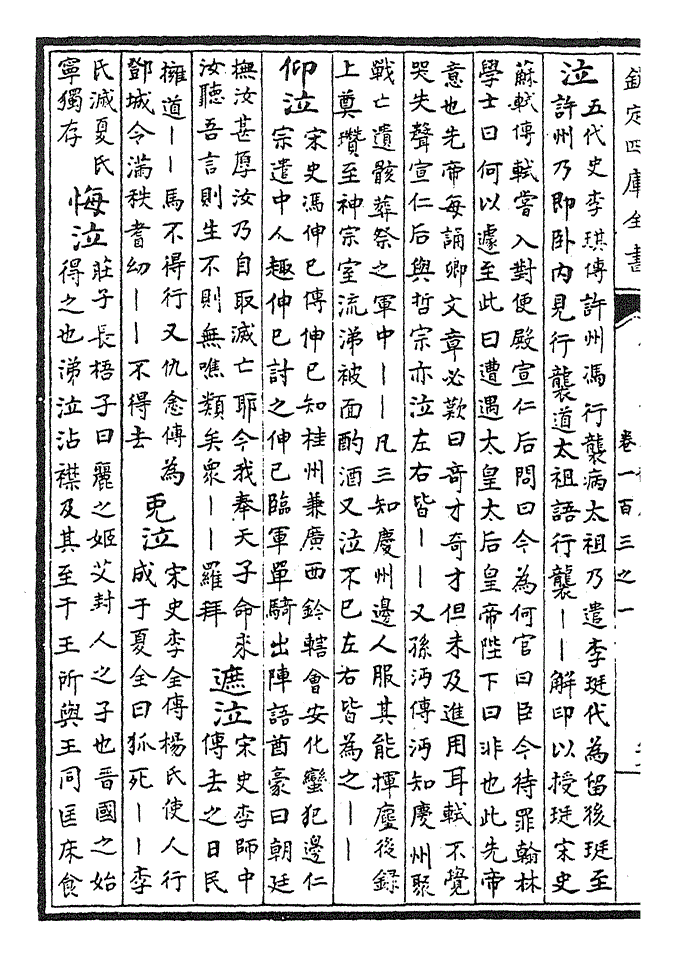 欽定四庫全書
卷一百三之一
泣
五代史李琪傳許州馮行襲病太祖乃遣李珽代為留後珽至
許州乃即卧内見行襲道太祖語行襲丨丨解印以授珽宋史
蘇軾傳軾嘗入對便殿宣仁后問曰今為何官曰臣今待罪翰林
學士曰何以遽至此曰遭遇太皇太后皇帝陛下曰非也此先帝
意也先帝每誦卿文章必歎曰奇才奇才但未及進用耳軾不覺
哭失聲宣仁后與哲宗亦泣左右皆丨丨又孫沔傳沔知慶州聚
戰亡遺骸葬祭之軍中丨丨凡三知慶州邊人服其能揮麈後録
上奠瓚至神宗室流涕被面酌酒又泣不已左右皆為之丨丨
仰泣
宋史馮伸已傳伸已知桂州兼廣西鈐轄會安化蠻犯邊仁
宗遣中人趣伸已討之伸已臨軍單騎出陣語酋豪曰朝廷
撫汝甚厚汝乃自取滅亡耶今我奉天子命來
汝聽吾言則生不則無噍類矣衆丨丨羅拜
遮泣
宋史李師中
傳去之日民
擁道丨丨馬不得行又仇悆傳為
鄧城令滿秩耆幼丨丨不得去
兎泣
宋史李全傳楊氏使人行
成于夏全曰狐死丨丨李
氏滅夏氏
寧獨存
悔泣
莊子長梧子曰麗之姬艾封人之子也晋國之始
得之也涕泣沾襟及其至于王所與王同匡床食